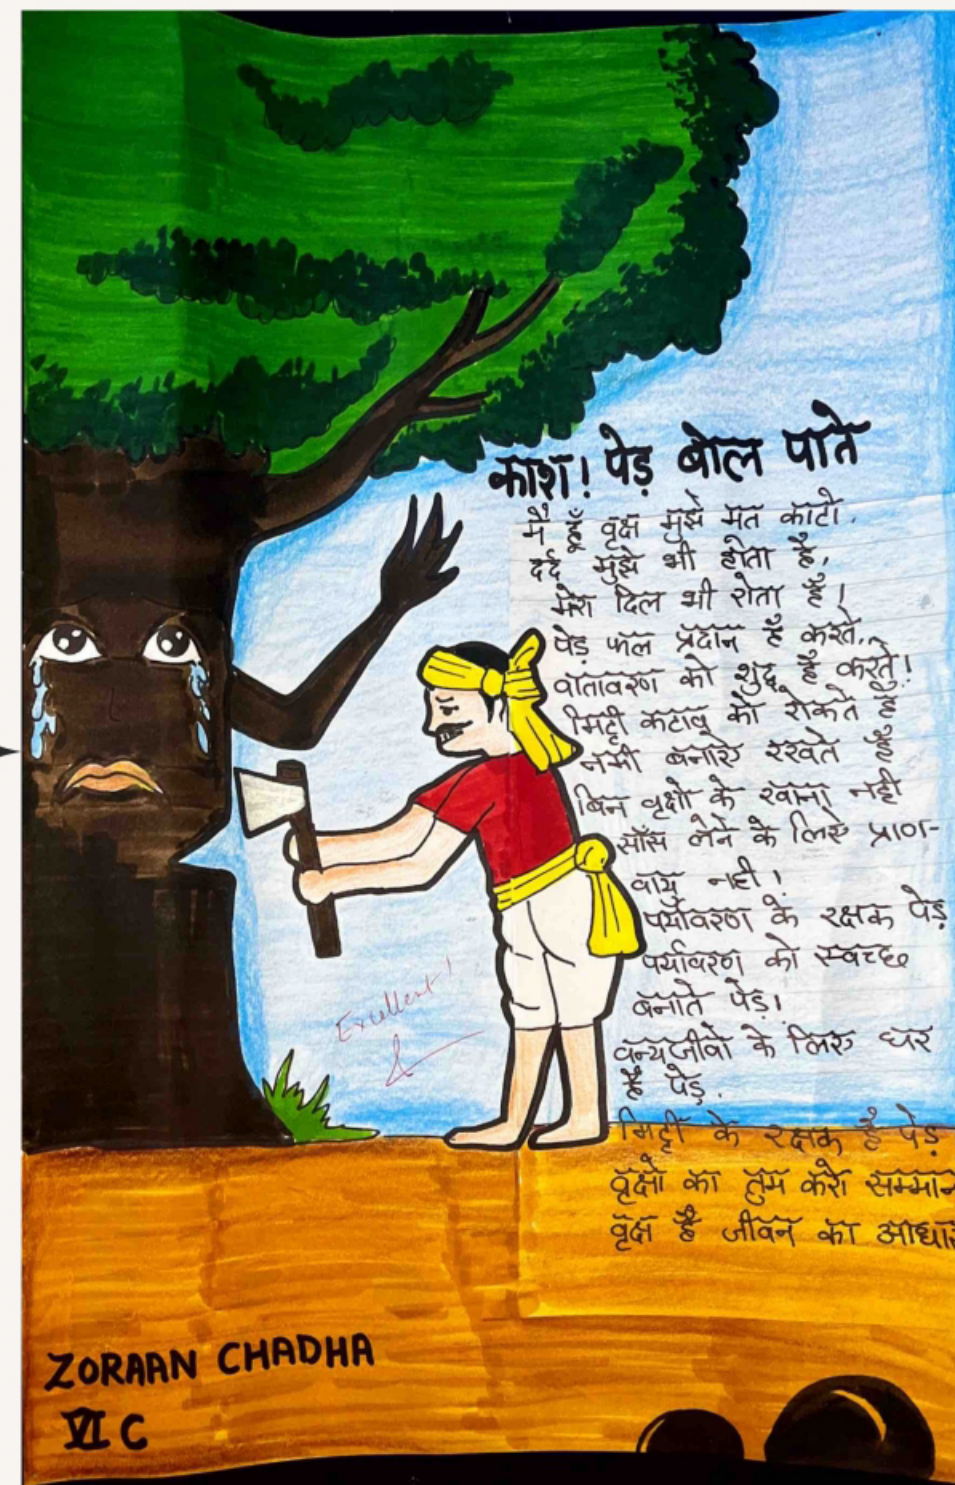 काश! पेड़ बोल पाते
मैं हूँ वृक्ष मुझे मत काटो,
दर्द मुझे भी होता है,
मेरा दिल भी रोता है!
पेड़ फल प्रदान है करते,
वातावरण को शुद्ध है करते!
मिट्टी कटाव को रोकते है
नमी बनाऐ रखते है
बिन वृक्षो के खाना नही
साँस लेने के लिए प्राण-
वायु नही!
पर्यावरण के रक्षक पेड़
पर्यावरण को स्वच्छ
बनाते पेड़!
वन्यजीवो के लिए घर
है पेड़.
मिट्टी के रक्षक है पेड़
वृक्षो का तुम करो सम्मान
वृक्ष है जीवन का आधार
Excellent!
ZORAAN CHADHA
VI C